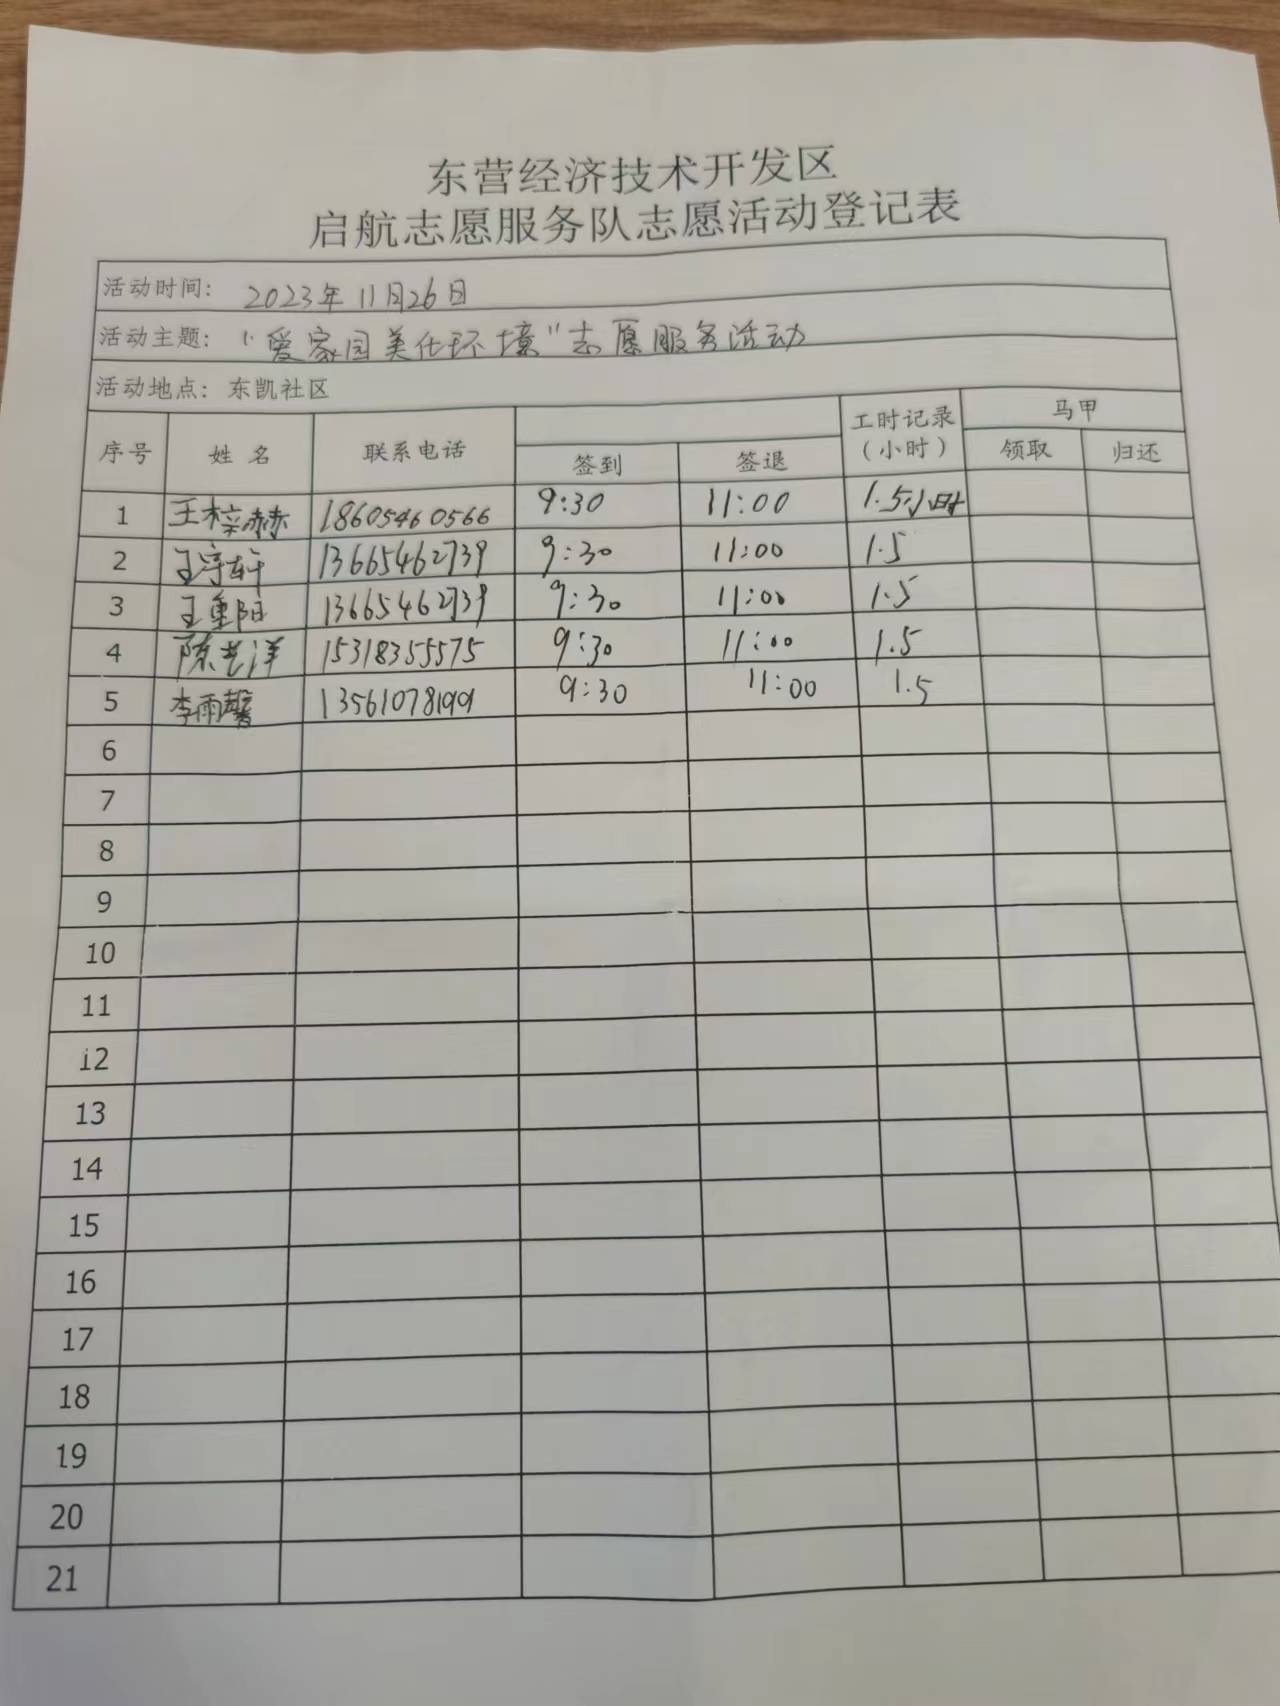 东营经济技术开发区
启航志愿服务队志愿活动登记表
活动时间： 2023年11月26日
活动主题： “爱家园美化环境”志愿服务活动
活动地点：东凯社区
序号 姓名 联系电话 签到 签退 工时记录（小时） 马甲 领取 归还
1 王梓赫 18605460566 9:30 11:00 1.5小时
2 王宇轩 13665462739 9:30 11:00 1.5
3 王重阳 13665462739 9:30 11:00 1.5
4 陈艺洋 15318355575 9:30 11:00 1.5
5 李雨馨 13561078199 9:30 11:00 1.5
6
7
8
9
10
11
12
13
14
15
16
17
18
19
20
21